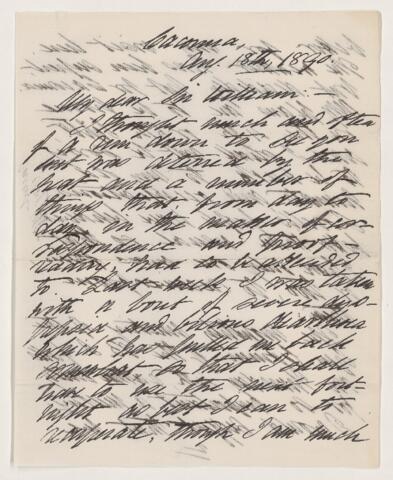 Cacouna,
Aug. 18th, 1890.
My dear Sir William:—
I thought much and often
of a run down to see you
but was deterred by the
heat and a number of
things that from day to
day in the matter of cor-
respondence and proof-
reading, had to be attended
to. Last week I was taken
with a bout of severe dys-
pepsia and bilious diarrhœa
which has pulled me back
somewhat so that I shall
have to use the next fort-
night as best I can to
recuperate, though I am much